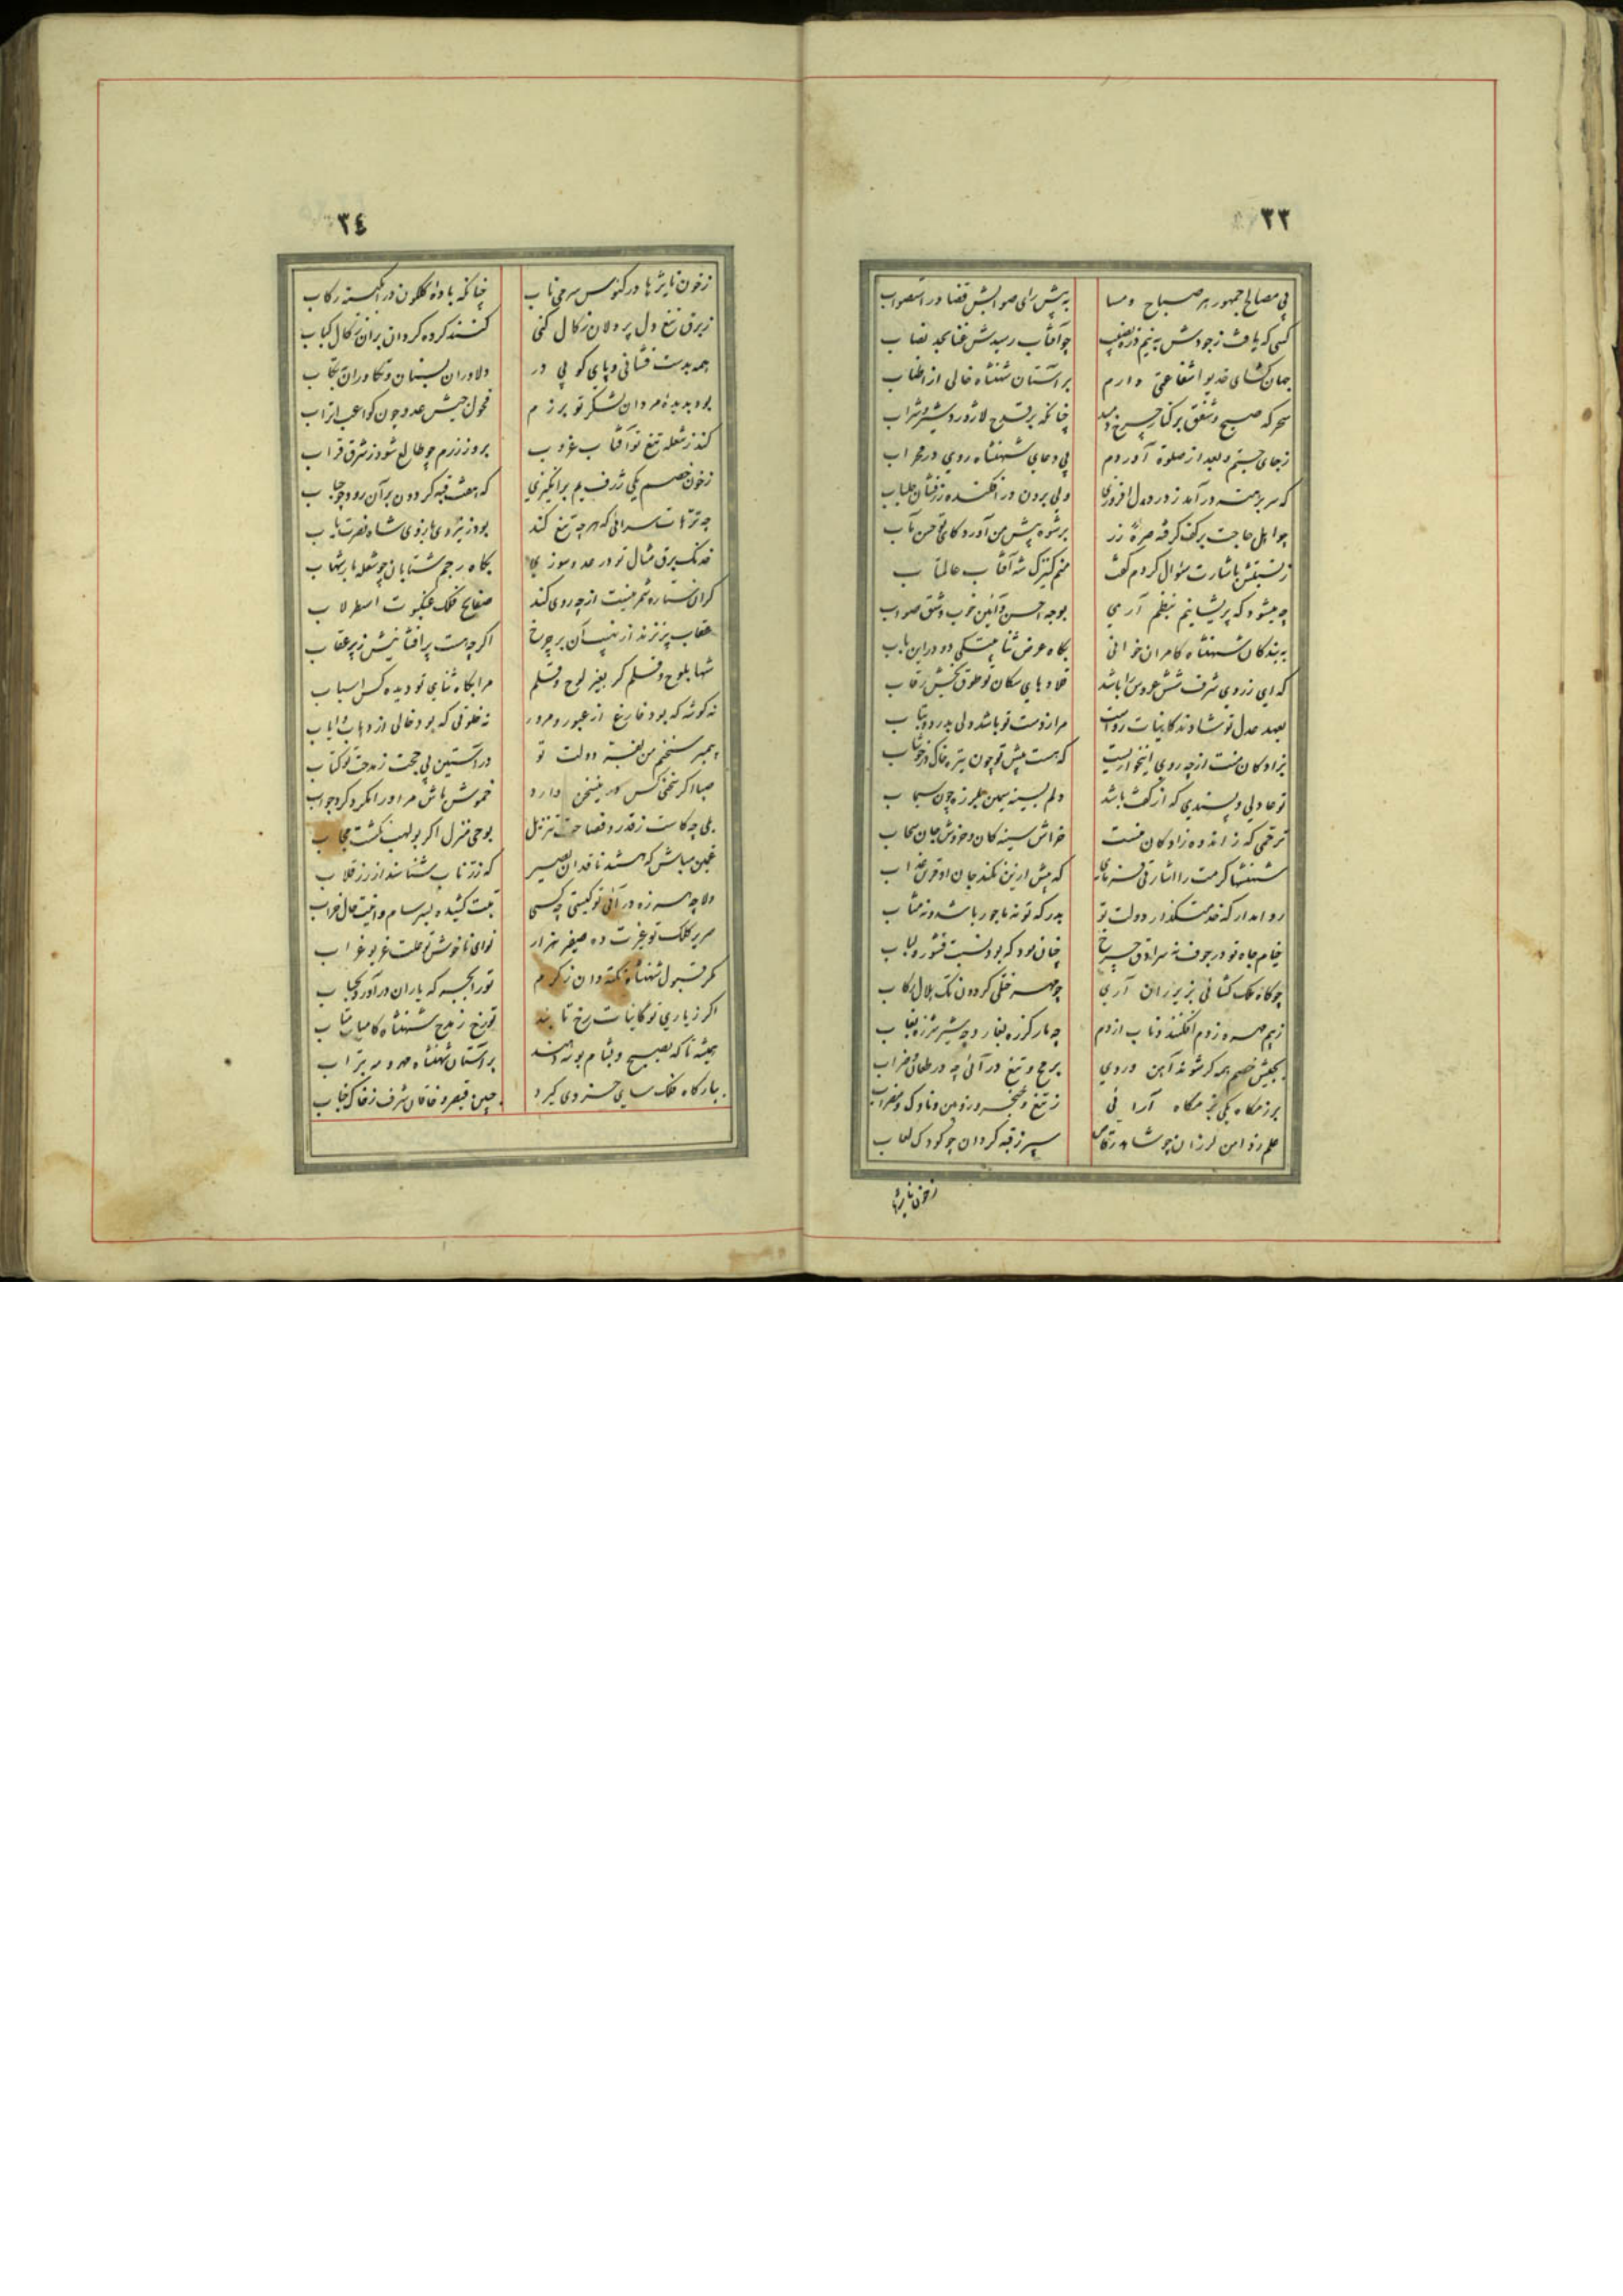 ٣٣
پی مصالح جمهور هر صباح و مسا
به پیش رای صوابش قضا در استصواب
کسی که یافت ز جودش به نیم ذره نصیب
چو آفتاب رسیدش غنا بحد نصاب
جهان کشای خدیوا شفاعتی دارم
بر آستان شهنشاه خالی از اطناب
سحر که صبح و شفق بر کنار چرخ دمید
چنانکه بر قدح لاژورد شیر و شراب
ز جای جستم و بعد از صلوة آوردم
پی دعای شهنشاه روی در محراب
که سر برهنه در آمد ز در و دل افروزی
ولی برون در افکنده زرفشان جلباب
چو اهل حاجت بر کف گرفته صرهٔ زر
برشوه پیش من آورد کای تو حسن مآب
ز نسبتش باشارت سئوال کردم گفت
منم کنیزک شه آفتاب عالمتاب
چه میشود که پریشانیم بنظم آری
بوجه احسن و آئین خوب و شق صواب
به بندکان شهنشاه کامران خوانی
بکاه عرض ثنا بیتکی دو در این باب
که ای ز روی شرف شش عروس را باشد
قلاده های سکان تو طوق بخش رقاب
بعهد عدل تو شاد وند کاینات رواست
مرا ز دست تو باشد دلی بدرد و بتاب
نژاد کان منت از چه روی اینخواریست
که هست پیش تو چون تیره خاک در خوشاب
تو عادلی و پسندی که از کفت باشد
دلم بسینه سیمین بلرزه چون سیماب
ترحمی که ز اندوه زاد کان منست
خراش سینه کان و خروش جان سحاب
شهنشها کرمت را اشارتی فرمای
که بیش ازین نکند جان او قرین عذاب
روا مدار که خدمتگذار دولت تو
بدرگه تو نه ماجور باشد و نه مثاب
خیام جاه تو در جوف نه سرادق چرخ
چنان بود که بود نسبت قشور و لباب
چو گاه ملک کشائی بزیر ران آری
چو مهر خنگی کردون تک هلال رکاب
ز بیم مهره ز دم افکنند و تاب از دم
چه مار کرزه بغار و چه شیر شرزه بغاب
بجیش خصم همه کر شوند آهن و روی
برمح و تیغ در آئی چه در طعان و ضراب
برزمگاه یکی بزمگاه آرائی
ز تیغ و خنجر و رومین و ناوک و مضراب
علم زد امن لرزان چو شاهد رقاص
سپر ز قبه کردان چو کودک لعاب
زخون نایژها
٣٤
زخون نایژها در کئوس سر می ناب
چنانکه باده کلگون در آبگینه رکاب
ز برق تیغ دل پر دلان زکال کنی
کنند کرده کردان بران زکال کباب
همه بدست فشانی و پای کوبی در
دلاوران بسنان و تکاوران بتکاب
بود بدیدهٔ مردان لشکر تو برزم
فحول جیش عدو چون کواعب اتراب
کند ز شعله تیغ تو آفتاب غروب
بروز رزم چو طالع شود ز شرق قراب
ز خون خصم یکی ژرف یم برانگیزی
که هفت قبه کردون بر آن رود چو حباب
چه ترهات سرائی که هر چه تیغ کند
بود ز نیروی بازوی شاه نصرت یاب
خدنک برق مثال تو در عدو سوزی
بکاه رجم شتابان چو شعله بار شهاب
گران ستاره شمر نیست از چه روی کند
صفایح فلک عنکبوت اسطرلاب
عقاب پر نزند از نهیب آن بر چرخ
اگر چه هست پر افشانیش ز پر عقاب
شها بلوح و قلم کر بغیر لوح و قلم
مرا بکاه ثنای تو دیده کس اسباب
نه کوشه که بود فارغ از عبور و مرور
نه خلوتی که بود خالی از ذهاب و ایاب
پیمبر سخنم من بفیّه دولت تو
در آستین پی حجت ز مدحت تو کتاب
صبا اگر سخنی کس در اینسخن دارد
خموش باش مر او را مکرد کرد جواب
بلی چه کاست ز قدر و فصاحت تنزیل
بوحی منزل اگر بولهب نکشت مجاب
غمین مباش که هستند ناقدان بصیر
که زرّ ناب شناسند از زر قلاب
دلا چه هرزه در آئی تو کیستی چه کسی
تبت کشیده بسرسام و انیت حال خراب
صریر کلک تو غیرت ده صفیر هزار
نوای ناخوش تو علت غریو غراب
مگر قبول شهنشاه نکته دان ز کرم
تو را بجبه که یاران در آورد بحباب
اگر ز یاری تو کاینات رخ تابند
تو رخ ز مدح شهنشاه کامیاب متاب
همیشه تا که بصبح و بشام بوسه دهند
بر آستان شهنشاه مهر و مه بتراب
ببارگاه فلک سای خسروی گیرد
جبین قیصر و خاقان شرف ز خاک جناب